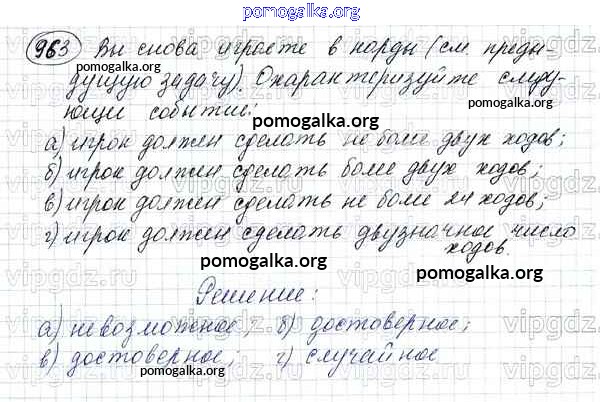 pomogalka.org
963 Вы снова играете в нарды (см. преды-
pomogalka.org
дущую задачу). Охарактеризуйте следу-
pomogalka.org
ющие событие:
pomogalka.org
а) игрок должен сделать не более двух ходов;
б) игрок должен сделать более двух ходов;
в) игрок должен сделать не более 24 ходов;
г) игрок должен сделать двузначное число
ходов.
pomogalka.org
pomogalka.org
Решение:
а) невозможное; б) достоверное;
pomogalka.org
в) достоверное; г) случайное
pomogalka.org
vipgdz.ru